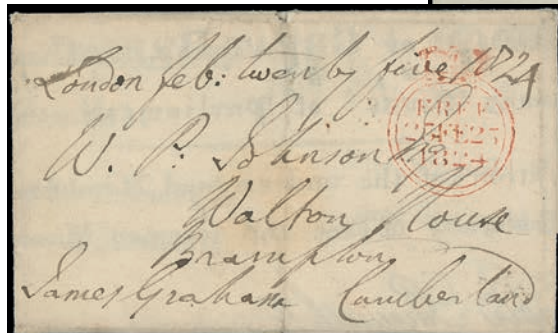 London feb: twenty five 1824
FREE
25 FE 25
1824
W. P: Johnson
Walton House
Brampton
James Graham Cumberland